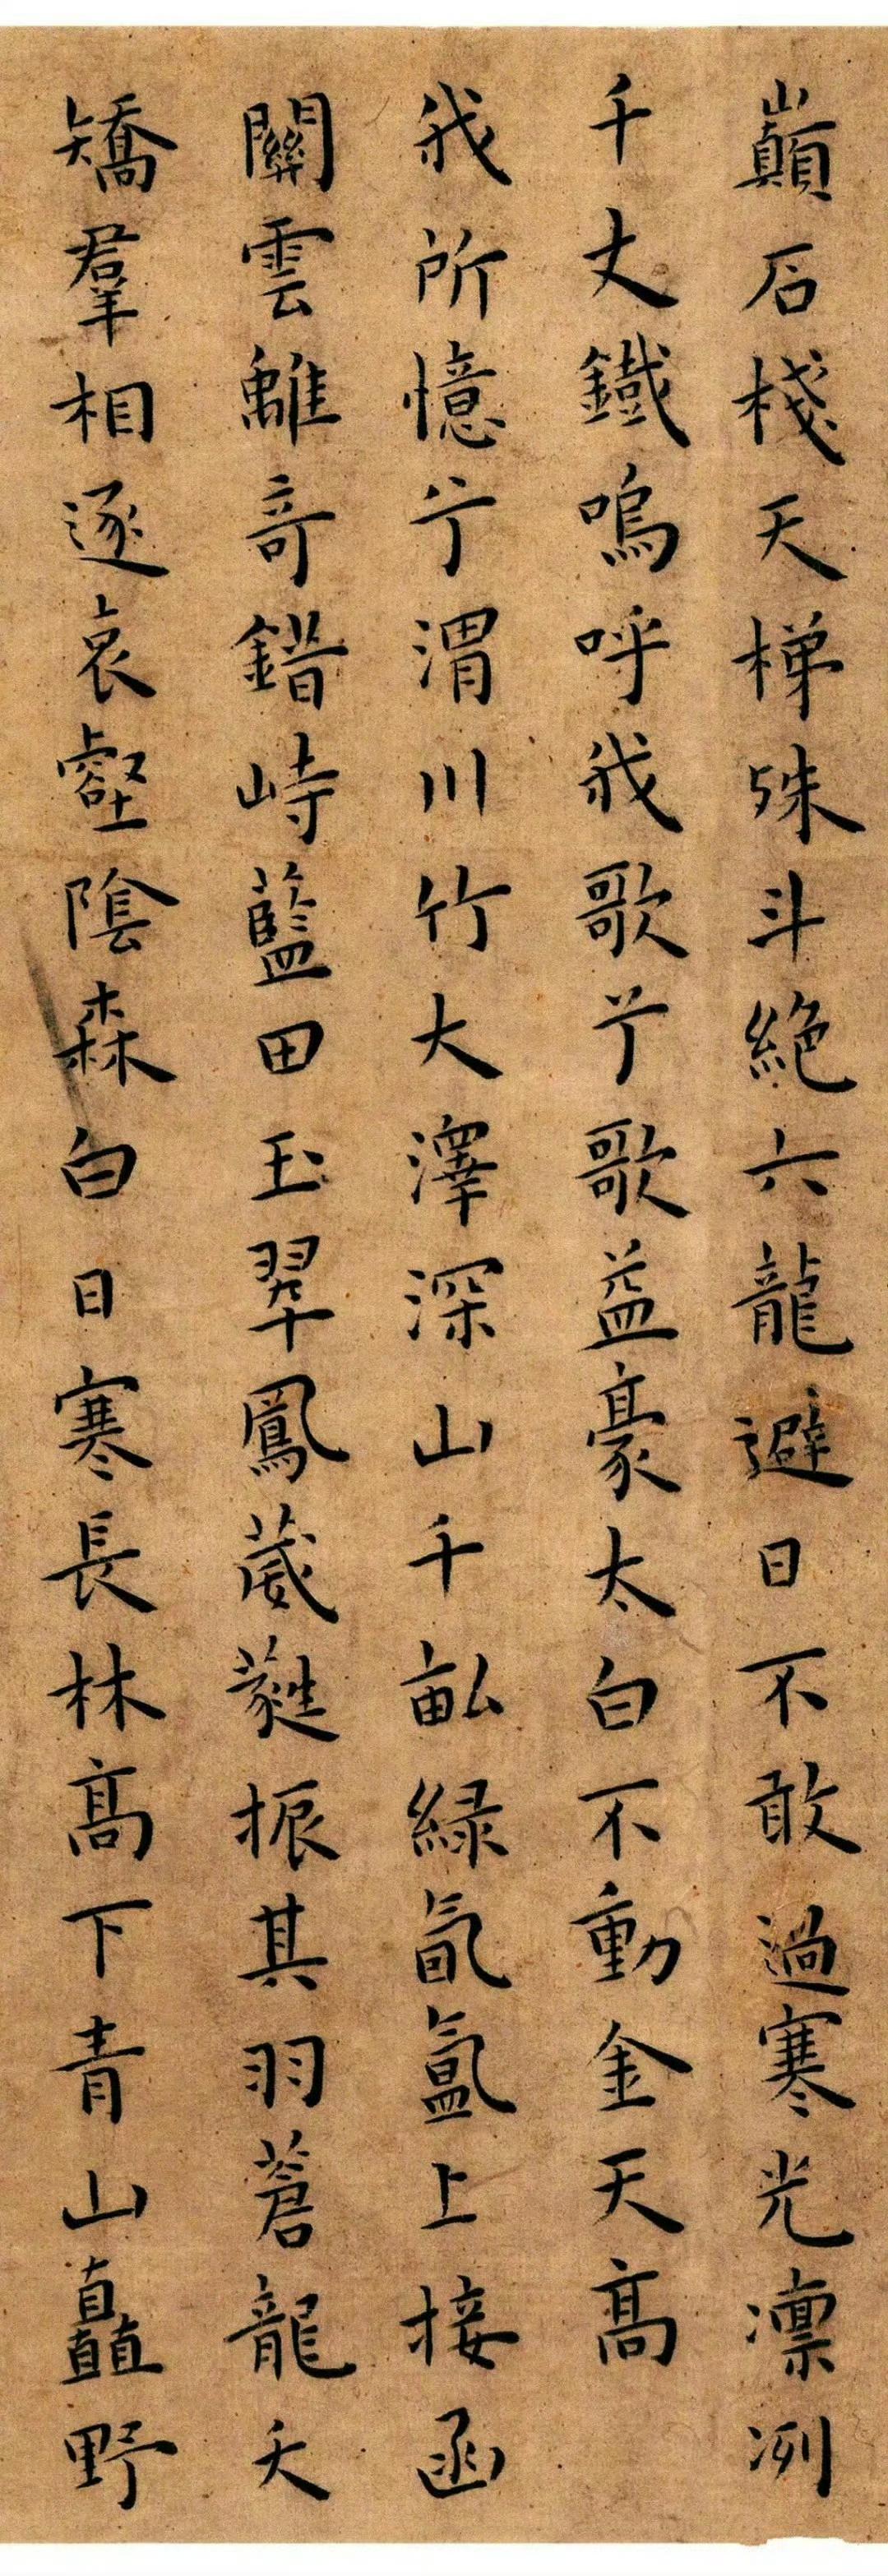 巔石棧天梯殊斗絶六龍避日不敢過寒光凛冽
千丈鐵嗚呼我歌兮歌益豪太白不動金天高
我所憶兮渭川竹大澤深山千畝緑氤氲上接函
關雲離奇錯峙藍田玉翠鳳葳蕤振其羽蒼龍夭
矯羣相逐哀壑陰森白日寒長林高下青山矗野